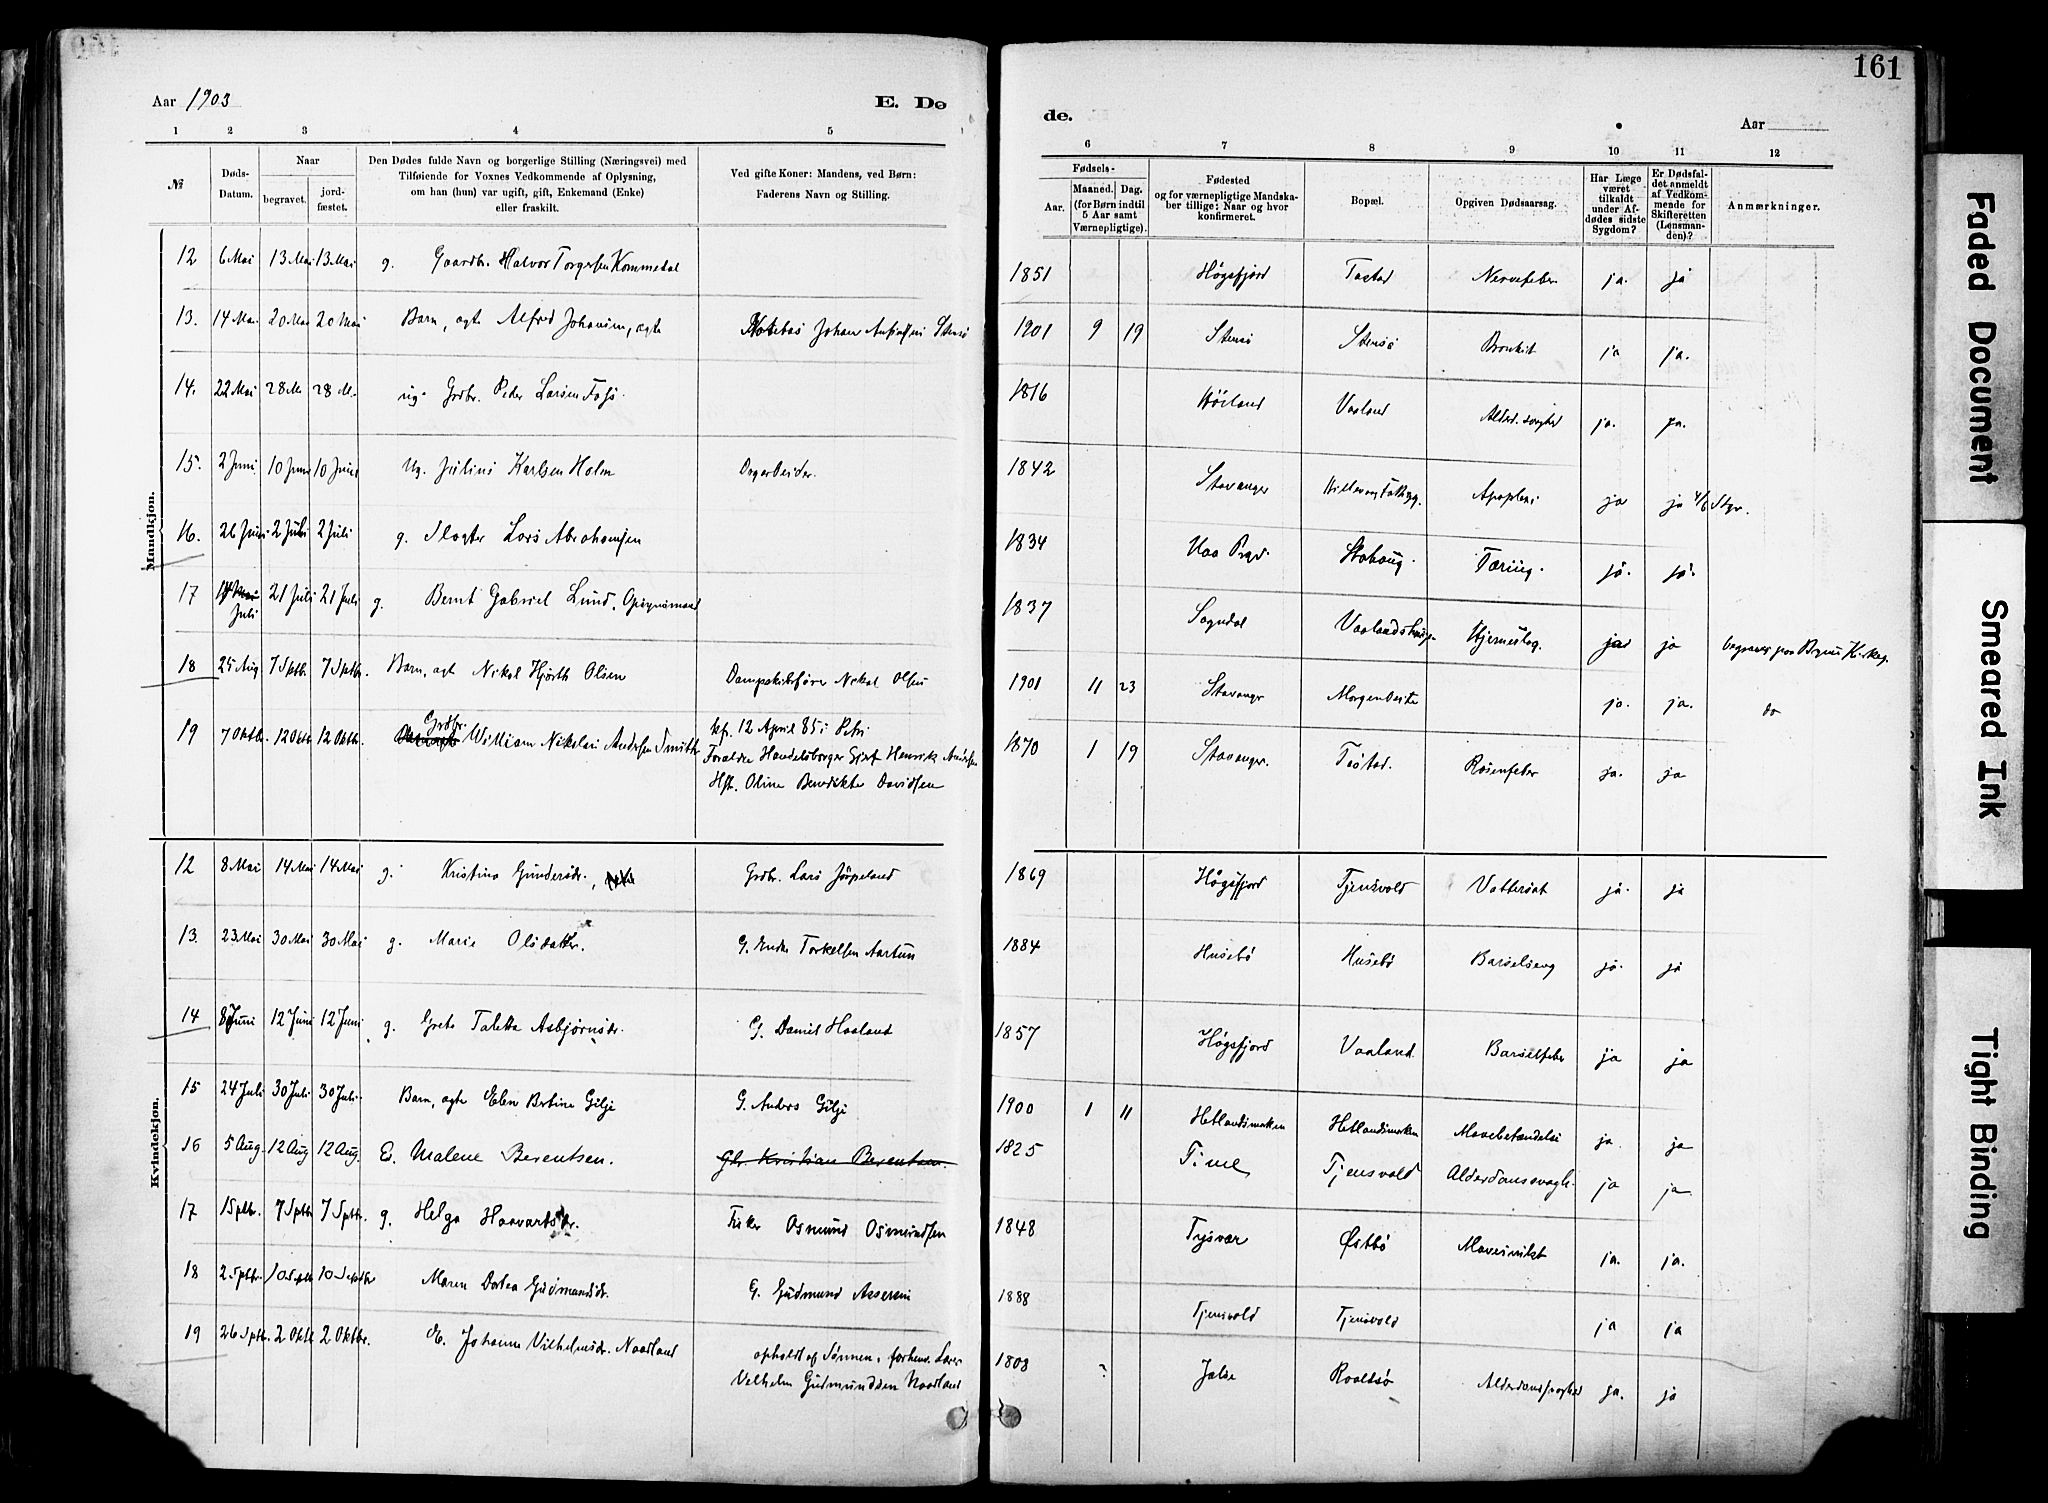 161
Aar 1903
E. Dø
de.
Aar
1 2 3 4 5
6 7 8 9 10 11 12
№
Døds-Datum.
Naar
begravet.
jord-fæstet.
Den Dødes fulde Navn og borgerlige Stilling (Næringsvei) med
Tilføiende for Voxnes Vedkommende af Oplysning,
om han (hun) var ugift, gift, Enkemand (Enke)
eller fraskilt.
Ved gifte Koner: Mandens, ved Børn:
Faderens Navn og Stilling.
Fødsels-
Aar.
Maaned. Dag.
(for Børn indtil
5 Aar samt
Værnepligtige).
Fødested
og for værnepligtige Mandska-
ber tillige: Naar og hvor
konfirmeret.
Bopæl.
Opgiven Dødsaarsag.
Har Læge
været
tilkaldt
under Af-
dødes sidste
Sygdom?
Er Dødsfal-
det anmeldt
af Vedkom-
mende for
Skifteretten
(Lensman-
den)?
Anmærkninger.
Mandkjøn.
12 6 Mai 13 Mai 13 Mai g. Gaardbr. Halvor Torgersen Kommedal 1851 Høgsfjord Tastad Nervefeber ja. ja
13. 14 Mai 20 Mai 20 Mai Barn, ægte Alfred Johannim, ægte Johan Stensø 1901 9 19 Stensø Stensø Bronkit ja ja.
14. 22 Mai 28 M. 28 M. ug. Grdbr. Peder Larsen 1816 Høiland Vaaland ja. ja.
15. 2 Juni 10 Juni 10 Juni Ug. Julius Karlsen Holm 1842 Stavanger Apoplexi ja ja 4/6
16. 26 Juni 2 Juli 2 Juli g. Slagter Lars Abrahamsen 1834 Tæring. ja. ja.
17 Juli 21 Juli 21 Juli g. Bernt Gabriel Lund, Opsynsmand 1837 Sogndal Hjerneslag. ja ja
18 25 Aug 7 Sptb. 7 Sptbr. Barn, ægte Nikal Hjorth Olsen Dampskibsfører Nikal Olsen 1901 11 23 Stavanger ja. ja. do
19 7 Oktbr. 12 Oktb. 12 Oktbr. Grdbr. William Nikolai Andersen Smith kf. 12 April 85 i Petri 1870 1 19 Stavanger. Rosenfeber ja. ja
Forældre Handelsborger Henrik Andersen
Hst. Oline Benedikte Davidsen
Kvindekjøn.
12 8 Mai 14 Mai 14 Mai g. Kristina Gundersdr., Grdbr. Lars Jøpeland 1869 Høgsfjord Tjensvold Vattersot ja. ja
13. 23 Mai 30 Mai 30 Mai g. Marie Olsdatter. G. Endre Torkelsen Aartun 1884 Husebø Husebø Barselseng ja. ja
14 8 Juni 12 Juni 12 Juni g. Grete Taletta Asbjørnsdr. G. Daniel Haaland 1857 Høgsfjord Vaaland Barselfeber ja ja
15 24 Juli 30 Juli 30 Juli Barn, ægte Elen Bertine Gilje G. Anders Gilje 1900 1 11 Hetlandsmarken Hetlandsmarken Mavebetændelse ja ja
16 5 Aug. 12 Aug 12 Aug. E. Malene Berentsen. Gbr. Kristian Berentsen. 1825 Time Tjensvold Alderdomssvagh. ja ja
17 1 Sptbr. 7 Sptb 7 Sptbr. g. Helga Haavartsdr. Fisker Osmund Osmundsen 1848 Tysvær Østbø ja. ja.
18 2 Sptbr. 10 Sptb 10 Septbr Maren Dortea Gudmundsdr. G. Gudmund Assersen 1888 Tjensvold Tjensvold ja ja
19 26 Sptbr. 2 Oktb 2 Oktbr. E. Johanne Vilhelmsdr. Naadland opholdt af Sønnen, forhenv. Lærer 1808 ? Jalse Roaldsø Alderdomssvaghed ja. ja
Velhelm Gudmundsen Naadland
Faded Document
Smeared Ink
Tight Binding